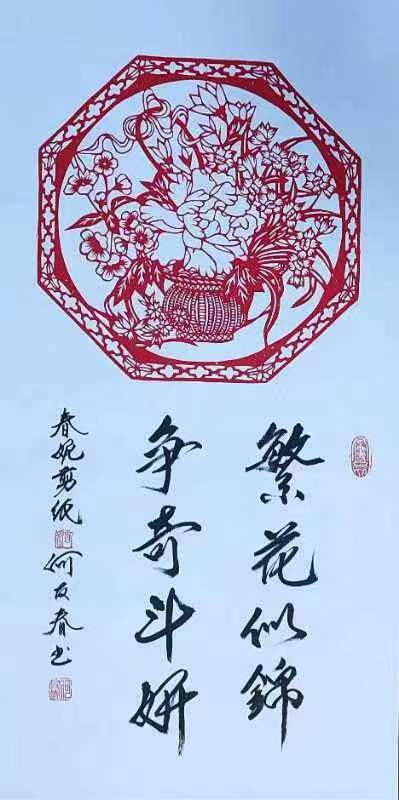 繁花似錦
争奇斗妍
春妮剪纸 何友春书